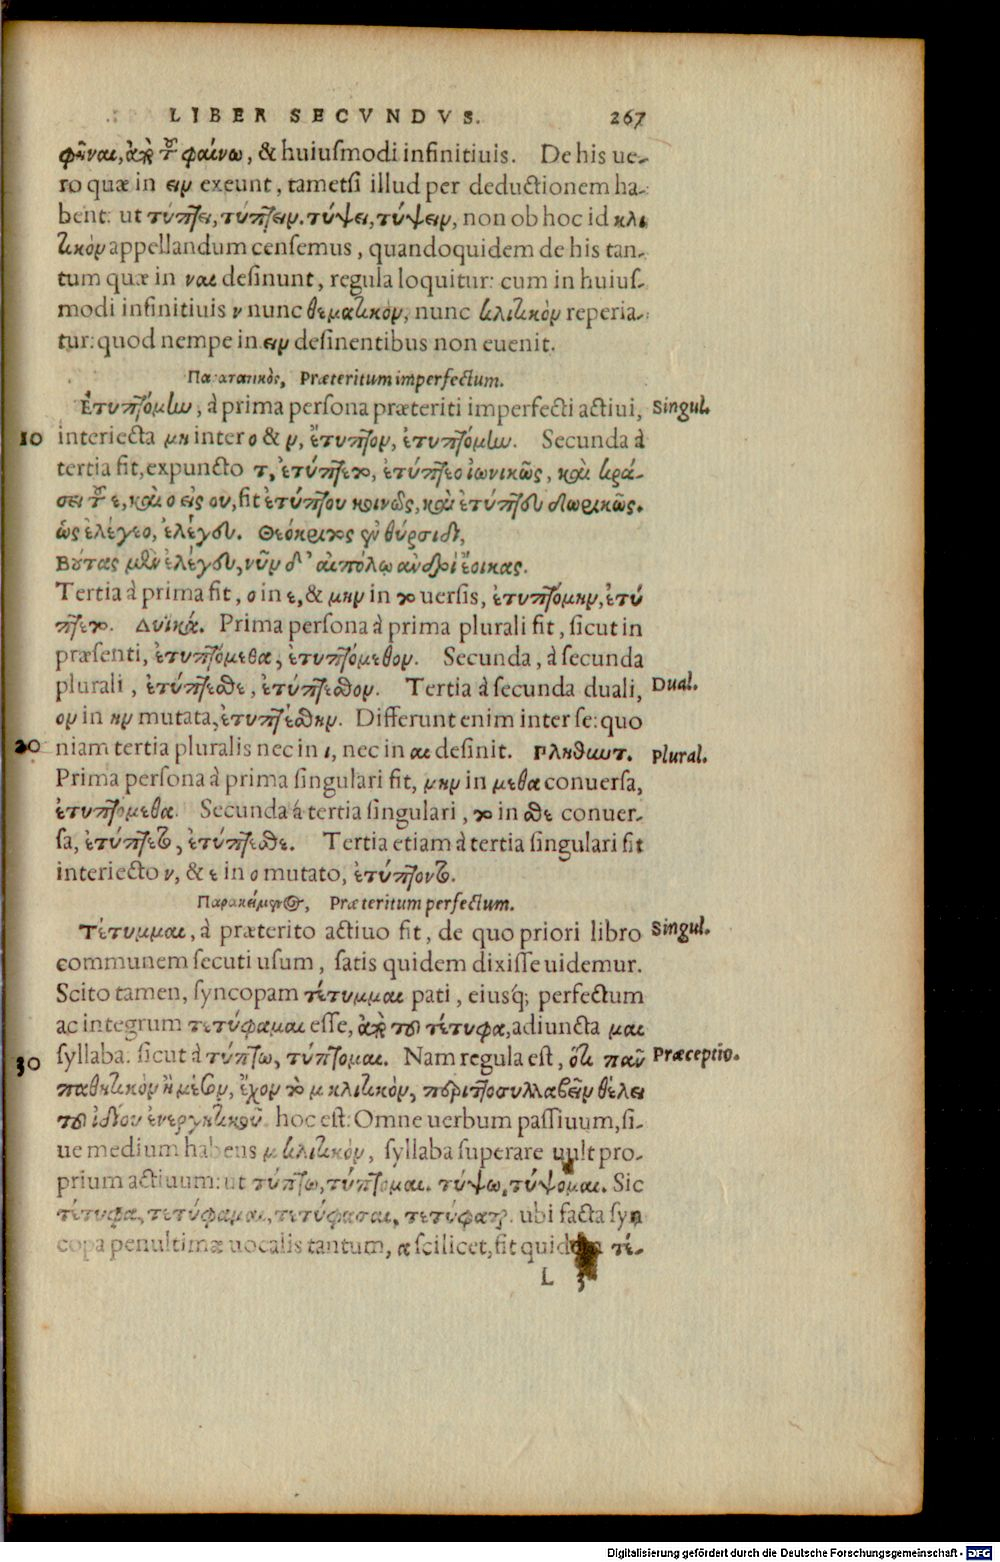 LIBER SECVNDVS. 267
φῆναι, ἀπὸ τοῦ φαίνω, & huiuſmodi infinitiuis. De his ue-
ro quæ in ειν exeunt, tametſi illud per deductionem ha-
bent: ut τύπτει, τύπτειν. τύψει, τύψειν, non ob hoc id κλι
τικὸν appellandum cenſemus, quandoquidem de his tan-
tum quæ in ναι deſinunt, regula loquitur: cum in huiuſ-
modi infinitiuis ν nunc θεματικὸν, nunc κλιτικὸν reperia-
tur: quod nempe in ειν deſinentibus non euenit.
Παρατατικὸς, Præteritum imperfectum.
Ἐτυπτόμην, à prima perſona præteriti imperfecti actiui, Singul.
10 interiecta μη inter ο & ν, ἔτυπτον, ἐτυπτόμην. Secunda à
tertia fit, expuncto τ, ἐτύπτετο, ἐτύπτεο ἰωνικῶς, καὶ κρά-
σει τοῦ ε, καὶ ο εἰς ου, fit ἐτύπτου κοινῶς, καὶ ἐτύπτευ δωρικῶς.
ὡς ἐλέγεο, ἐλέγευ. Θεόκριτος ἐν θύρσιδι,
Βούτας μὲν ἐλέγευ, νῦν δ' αἰπόλῳ ἀνδρὶ ἔοικας.
Tertia à prima fit, ο in ε, & μην in το uerſis, ἐτυπτόμην, ἐτύ
πτετο. Δυϊκά. Prima perſona à prima plurali fit, ſicut in
præſenti, ἐτυπτόμεθα, ἐτυπτόμεθον. Secunda, à ſecunda
plurali, ἐτύπτεσθε, ἐτύπτεσθον. Tertia à ſecunda duali, Dual.
ον in ην mutata, ἐτυπτέσθην. Differunt enim inter ſe: quo
20 niam tertia pluralis nec in ι, nec in αι deſinit. Πληθυντ. Plural.
Prima perſona à prima ſingulari fit, μην in μεθα conuerſa,
ἐτυπτόμεθα. Secunda á tertia ſingulari, το in σθε conuer-
ſa, ἐτύπτετο, ἐτύπτεσθε. Tertia etiam à tertia ſingulari fit
interiecto ν, & ε in ο mutato, ἐτύπτοντο.
Παρακείμενος, Præteritum perfectum.
Τέτυμμαι, à præterito actiuo fit, de quo priori libro Singul.
communem ſecuti uſum, ſatis quidem dixiſſe uidemur.
Scito tamen, ſyncopam τέτυμμαι pati, eiusq; perfectum
ac integrum τετύφαμαι eſſe, ἀπὸ τοῦ τέτυφα, adiuncta μαι
30 ſyllaba. ſicut à τύπτω, τύπτομαι. Nam regula eſt, ὅτι πᾶν Præceptio.
παθητικὸν ἢ μέσον, ἔχον τὸ μ κλιτικὸν, περιττοσυλλαβεῖν θέλει
τοῦ ἰδίου ἐνεργητικοῦ. hoc eſt: Omne uerbum paſſiuum, ſi-
ue medium habens μ κλιτικὸν, ſyllaba ſuperare uult pro-
prium actiuum: ut τύπτω, τύπτομαι. τύψω, τύψομαι. Sic
τέτυφα, τετύφαμαι, τετύφασαι, τετύφαται. ubi facta ſyn
copa penultimæ uocalis tantum, α ſcilicet, fit quidem τέ-
L 3
Digitalisierung gefördert durch die Deutsche Forschungsgemeinschaft - DFG